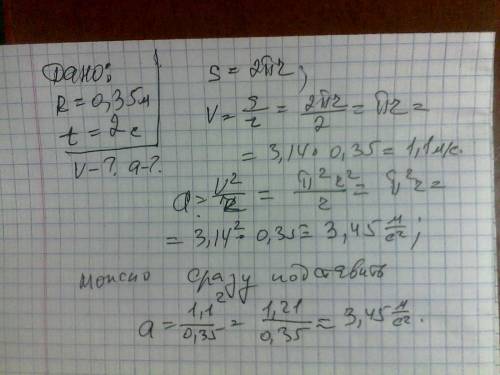 Дано:
R = 0,35м
t = 2 с
V - ?. a - ?.
S = 2πr;
V = S/t = 2πr/2 = πr =
= 3,14 · 0,35 = 1,1 м/с.
a = V²/R = π²r²/r = π²r =
= 3,14² · 0,35 = 3,45 м/с²;
можно сразу подставить
a = 1,1²/0,35 = 1,21/0,35 = 3,45 м/с².